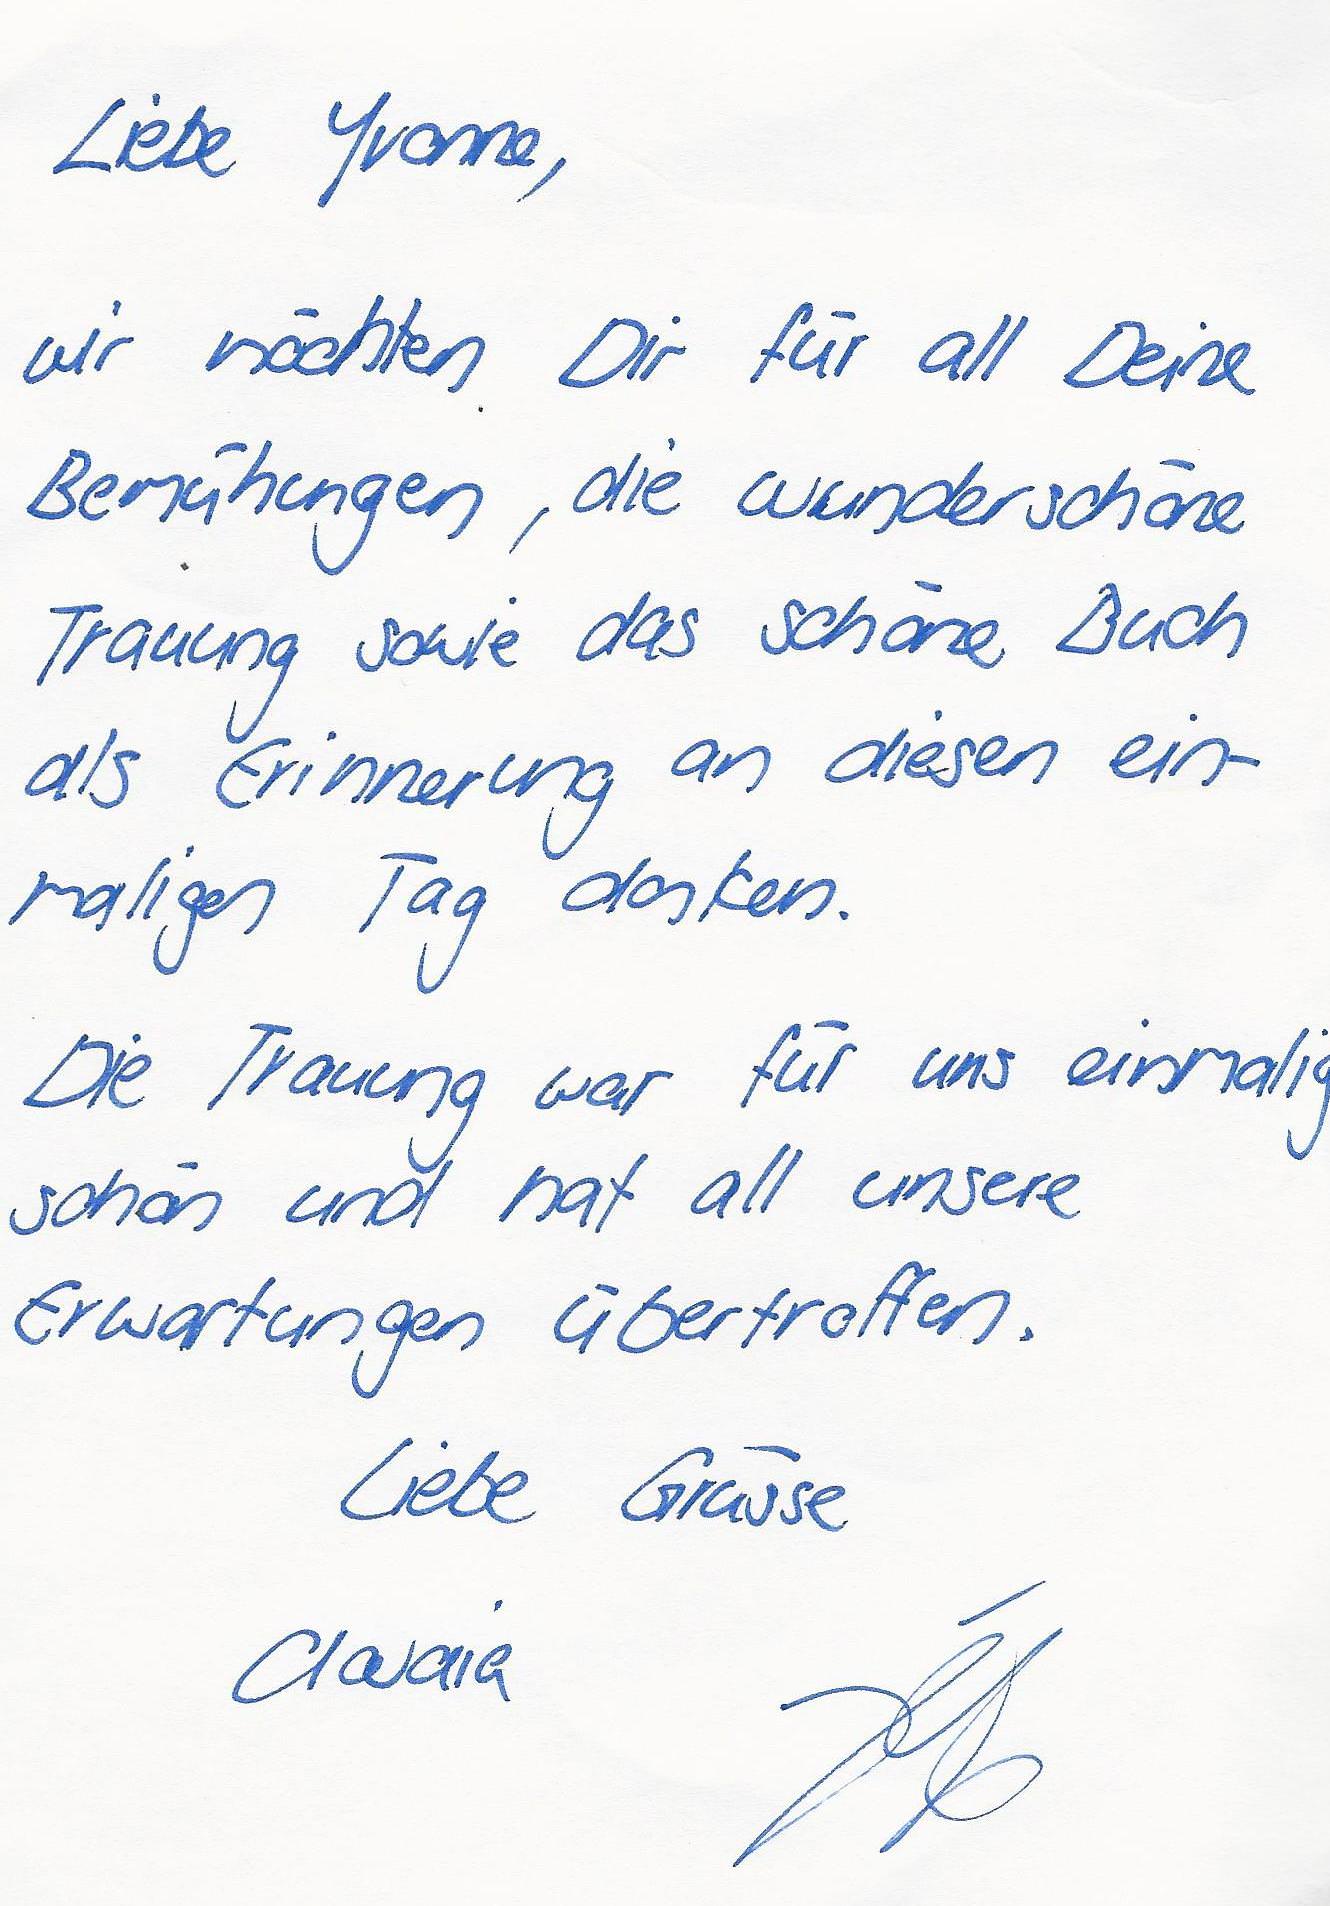 Liebe Yvonne,
wir möchten Dir für all Deine
Bemühungen, die wunderschöne
Trauung sowie das schöne Buch
als Erinnerung an diesen ein-
maligen Tag danken.
Die Trauung war für uns einmalig
schön und hat all unsere
Erwartungen übertroffen.
Liebe Grüsse
Claudia